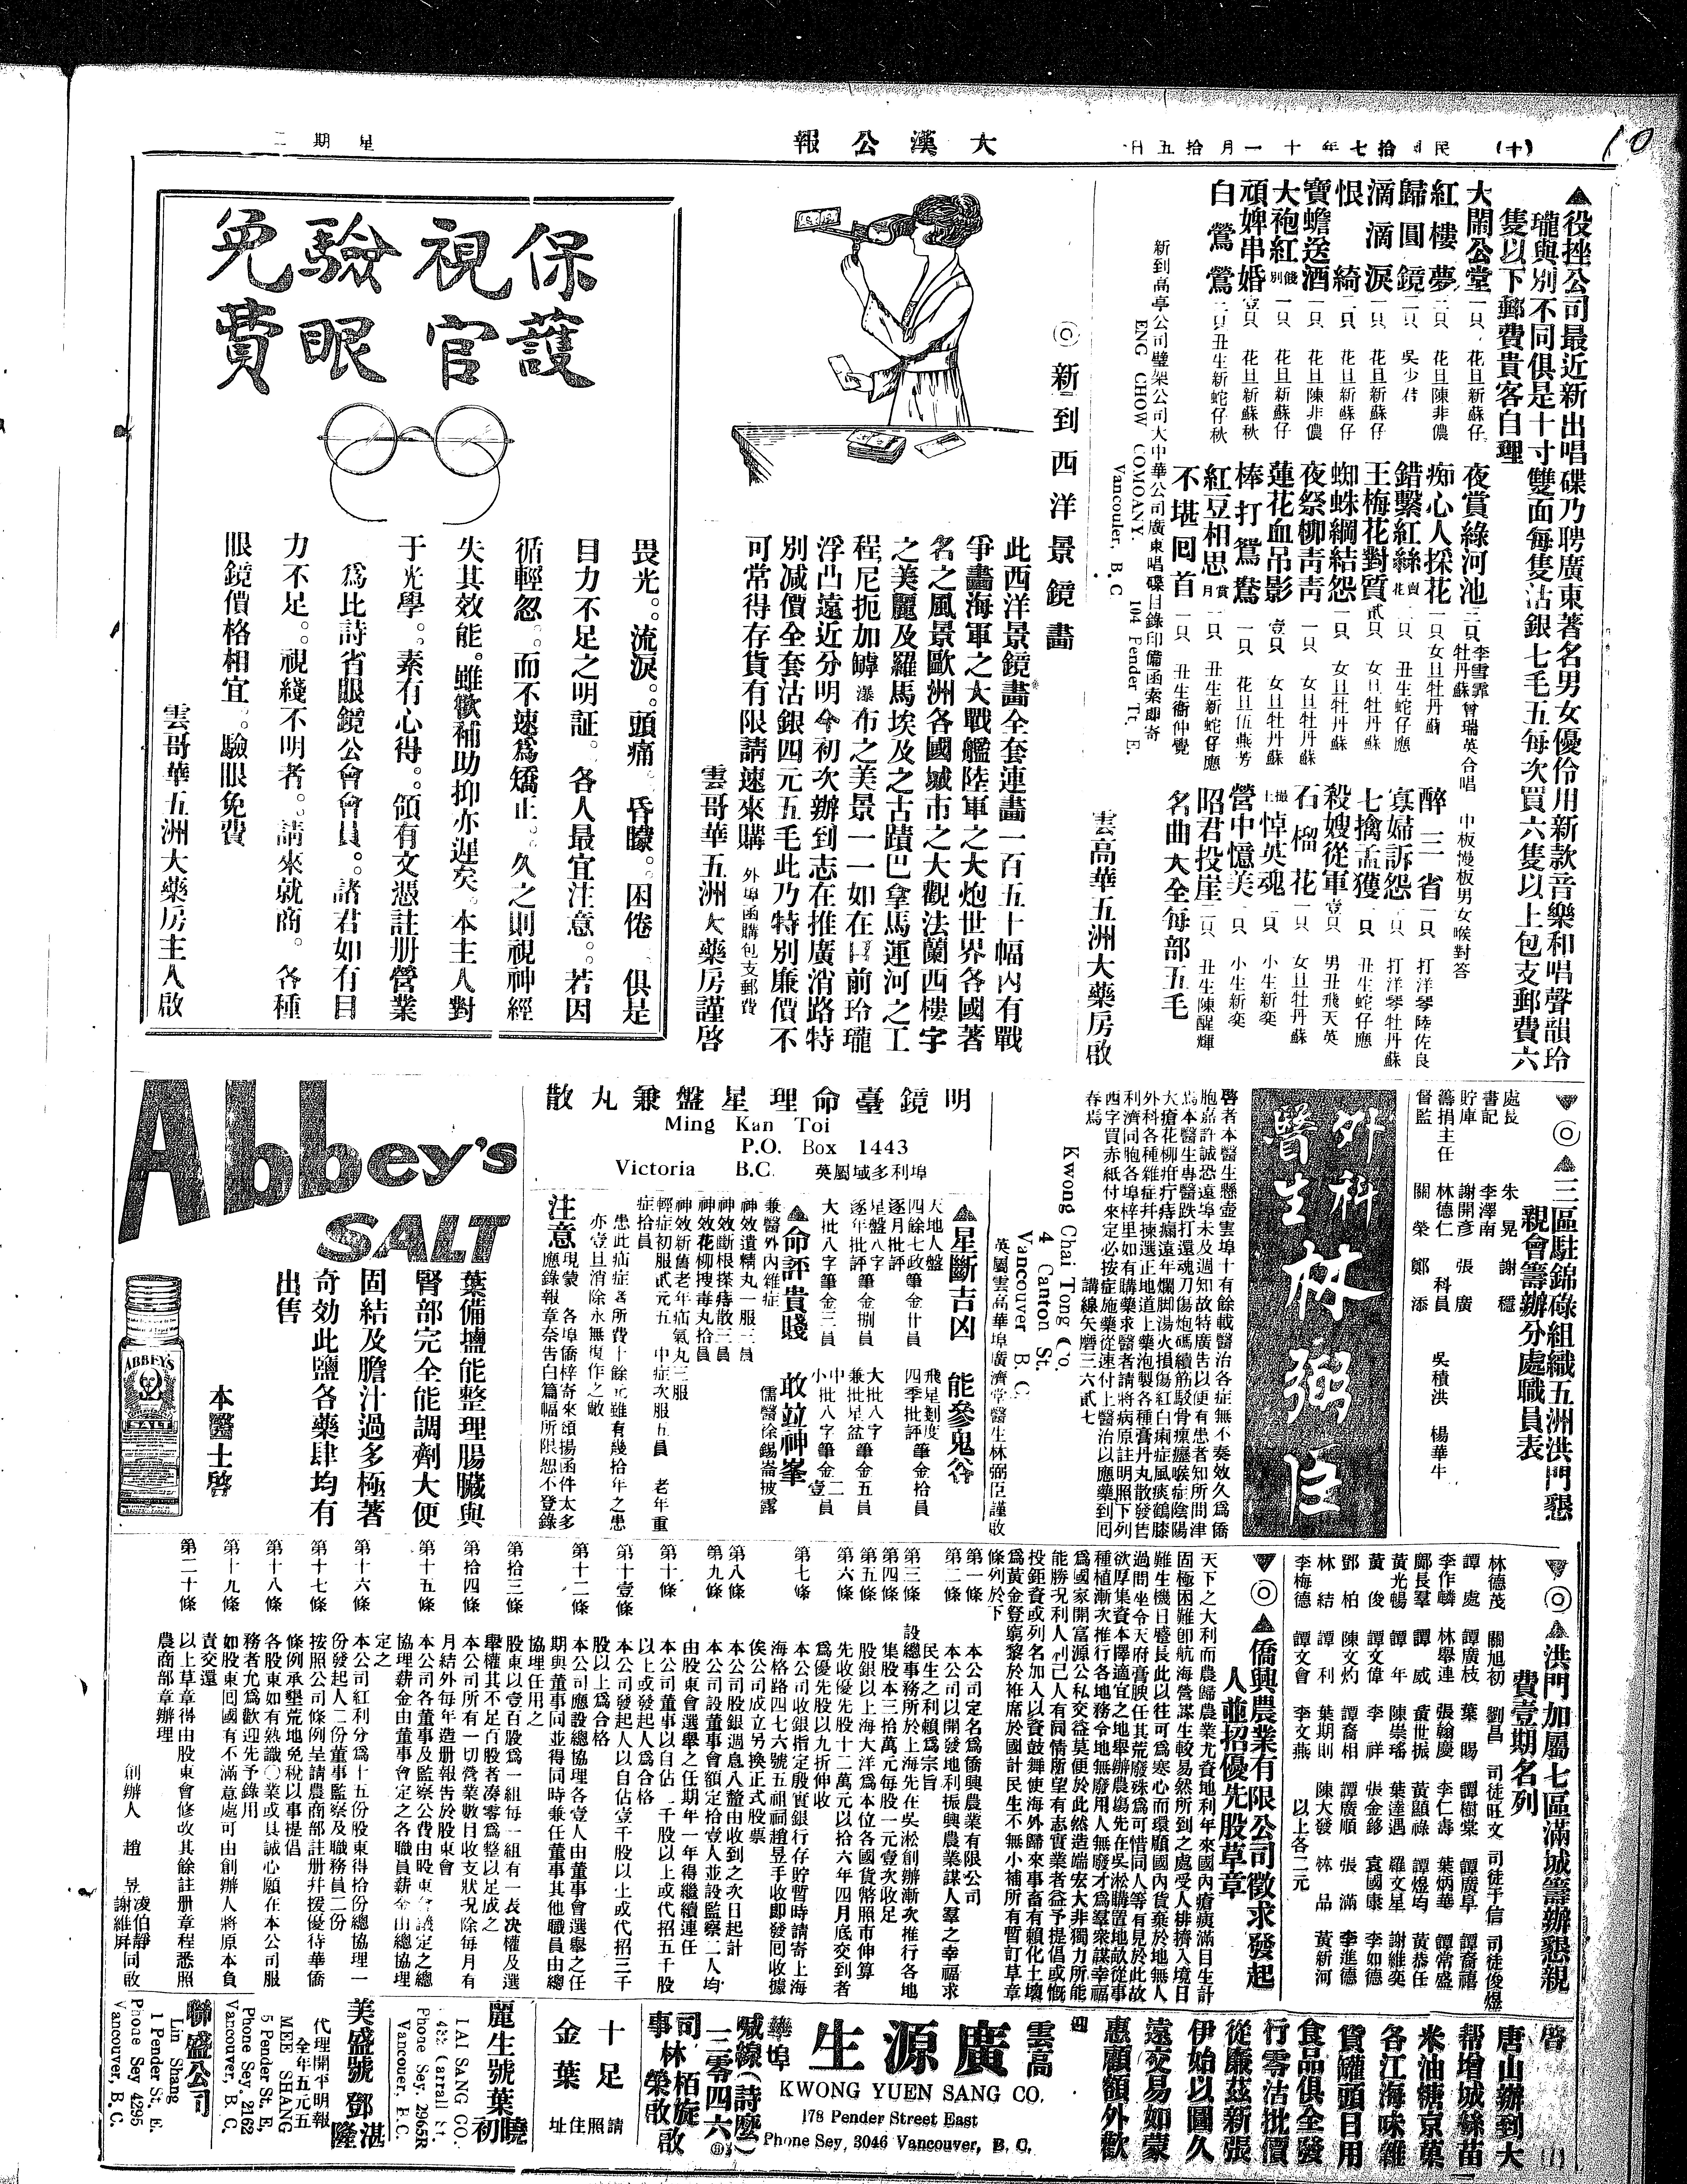 10
(十)
民國拾七年十一月拾五日
大漢公報
星期二
▲役挫公司最近新出唱碟乃聘廣東著名男女優伶用新款音樂和唱聲韻玲
瓏與別不同俱是十寸雙面每隻沽銀七毛五每次買六隻以上包支郵費六
隻以下郵費貴客自理
大閙公堂 一只 花旦新蘇仔
紅樓夢 二只 花旦陳非儂
歸圓鏡 二只
滴滴淚 一只 花旦新蘇仔
恨綺 二只 花旦新蘇仔
寶蟾送酒 一只 花旦陳非儂
大袍紅 一只 花旦新蘇仔
頑婢串婚 壹只 花旦新蘇秋
白鶯鶯 二只 丑生新蛇仔秋
夜賞綠河池 三只 李雪霏 牡丹蘇 曾瑞英合唱 中板慢板男女喉對答
痴心人採花 一只 女旦牡丹蘇
錯繫紅絲 賣花 一只 丑生蛇仔應
王梅花對質 貳只 女旦牡丹蘇
蜘蛛綱結怨 一只 女旦牡丹蘇
夜祭柳靑靑 一只 女旦牡丹蘇
蓮花血吊影 壹只 女旦牡丹蘇
棒打鴛鴦 一只 花旦伍燕芳
紅豆相思 賞月 一只 丑生新蛇仔應
不堪回首 一只 丑生衞仲覺
醉三省 一只 打洋琴陸佐良
寡婦訴怨 一只 打洋琴牡丹蘇
七擒孟獲 一只 丑生蛇仔應
殺嫂從軍 壹只 男丑飛天英
石榴花 一只 女旦牡丹蘇
悼英魂 一只 小生新奕
營中憶美 一只 小生新奕
昭君投崖 二只 丑生陳醒輝
名曲大全每部五毛
新到高亭公司璧架公司大中華公司廣東唱碟目錄印備函索即寄
ENG CHOW COMOANY.
104 Pender Tt. E.
Vancouler, B. C
雲高華五洲大藥房啟
◎新到西洋景鏡畵
此西洋景鏡畵全套連畵一百五十幅內有戰
爭畵海軍之大戰艦陸軍之大炮世界各國著
名之風景歐洲各國城市之大觀法蘭西樓字
之美麗及羅馬埃及之古蹟巴拿馬運河之工
程尼扼加罅瀑布之美景一一如在目前玲瓏
浮凸遠近分明今初次辦到志在推廣消路特
別减價全套沽銀四元五毛此乃特別廉價不
可常得存貨有限請速來購 外埠函購包支郵費
雲哥華五洲大藥房謹啓
保護視官
驗眼免費
畏光。流淚。頭痛 昏矇。困倦 俱是
目力不足之明証。各人最宜注意。若因
循輕忽。而不速爲矯正。久之則視神經
失其效能。雖歡補助抑亦遲矣。本主人對
于光學。素有心得。領有文憑註册營業
爲比詩省眼鏡公會會員。諸君如有目
力不足。視綫不明者。請來就商。各種
眼鏡價格相宜。驗眼免費
雲哥華五洲大藥房主人啟
▼◎▲三區駐錦碌組織五洲洪門懇
親會籌辦分處職員表
處長 朱晃 謝穩
書記 李澤南
貯庫 謝開彥 張廣
籌捐主任 林德仁 科員 吳積洪 楊華牛
督監 關榮 鄭添
外科醫生林弼臣
啓者本醫生懸壺雲埠十有餘載醫治各症無不奏效久爲僑
胞嘉許誠恐遠埠未及週知故特廣告以便有患者知所問津
焉本醫生專醫跌打還魂刀傷炮碼續筋駁骨瘰癧喉症陰陽
大瘡花柳疳疔痔瘺遠年爛脚湯火損傷紅白痢症風痰鶴膝
外科各種雜症幷揀選正地道上藥泡製各種膏丹丸散發售
利濟同胞各埠梓里如有購藥求醫者請將病原註明照下列
西字買赤紙付來定必按症施藥從速付上醫治以應藥到囘
春焉 講線矢磨三六貳七
Kwong Chai Tong Co.
4 Canton St.
Vancouver B. C.
英屬雲高華埠廣濟堂醫生林弼臣謹啟
明鏡臺命理星盤兼丸散
Ming Kan Toi
P.O. Box 1443
Victoria B.C. 英屬域多利埠
▲星斷吉凶 能參鬼谷
天地人盤 飛星剝度
四餘七政筆金廿員 四季批評筆金拾員
逐月批評
星盤八字 大批八字
逐年批評筆金捌員 兼批星盆筆金五員
大批八字筆金三員 中批八字筆金二員
小批八字筆金壹員
▲命評貴賤 敢竝神峯
兼醫外內雜症 儒醫徐錫崙披露
神效遺精丸一服二員
神效斷根搽痔散三員
神效花柳搜毒丸拾員
神效新舊老年疝氣丸三服
輕症初服貳元五 中症次服五員 老年重
症拾員
患此疝症者所費十餘元雖有幾拾年之患
亦壹旦消除永無復作之敝
注意 現蒙 各埠僑梓寄來頌揚函件太多
應錄報章奈告白篇幅所限恕不登錄
Abbey's
SALT
葉備壚能整理腸臟與
腎部完全能調劑大便
固結及膽汁過多極著
奇効此鹽各藥肆均有
出售
本醫士啓
ABBEY'S
SALT
▼◎▲洪門加屬七區滿城籌辦懇親
費壹期名列
林德茂 關旭初 劉昌 司徒旺文 司徒于信 司徒俊煜
譚處 譚廣枝 葉賜 譚樹棠 譚廣阜 譚裔禧
李作麟 林舉連 張翰慶 李仁壽 葉炳華 譚常盛
鄺長羣 譚威 黃世振 黃顯祿 譚煜均 黃恭任
黃光暢 譚年 陳崇璠 葉達遇 羅文星 謝維奕
黃俊 譚文偉 李祥 張金鉹 袁國康 李如德
鄧柏 陳文灼 譚裔相 譚廣順 張滿 李進德
林結 譚利 葉期則 陳大發 林品 黃新河
李梅德 譚文會 李文燕 以上各二元
▼◎▲僑興農業有限公司徵求發起
人並招優先股草章
天下之大利而農歸農業尤資地利年來國內瘡痍滿目生計
固極困難卽航海營謀生較易然所到之處受人排擠入境日
難生機日蹙長此以往可爲寒心而環顧國內貨棄於地無人
過問坐令天府膏腴任其荒廢殊爲可惜同人等有見於此故
欲厚集資本擇適宜之地舉辦農塲先在吳淞購置地畝從事
種植漸次推行各地務令地無廢用人無廢才爲羣衆謀幸福
爲國家開富源公私交益莫便於此然造端宏大非獨力所能
能勝况利人利己人有同情所望有志實業者益予提倡或慨
投鉅資或列名加入以資鼓舞使海外歸來事畜有賴化土壤
爲黃金登窮黎於袵席於國計民生不無小補所有暫訂草章
條列於下
第一條 本公司定名爲僑興農業有限公司
第二條 本公司以開發地利振興農業謀人羣之幸福求
民生之利賴爲宗旨
第三條 設總事務所於上海先在吳淞創辦漸次推行各地
第四條 集股本三拾萬元每股一元壹次收足
第五條 股銀以上海大洋爲本位各國貨幣照市伸算
第六條 先收優先股十二萬元以拾六年四月底交到者
爲優先股以九折伸收
第七條 本公司收銀指定殷實銀行存貯暫時請寄上海
海格路四七六號五祖祠趙昱手收即發囘收據
俟公司成立另換正式股票
第八條 本公司股銀週息八釐由收到之次日起計
第九條 本公司設董事會額定拾壹人並設監察二人均
由股東會選舉之任期年一年得繼續連任
第十條 本公司董事以自佔一千股以上或代招五千股
以上或發起人爲合格
第十壹條 本公司發起人以自佔壹千股以上或代招三千
股以上爲合格
第十二條 本公司應設總協理各壹人由董事會選舉之任
期與董事同並得同時兼任董事其他職員由總
協理任用之
第拾三條 股東以壹百股爲一組每一組有一表决權及選
舉權其不足百股者湊零爲整以足成之
第拾四條 本公司所有一切營業數目收支狀况除每月有
月結外每年造册報告於股東會
第十五條 本公司各董事及監察公費由股東會議定之總
協理薪金由董事會定之各職員薪金由總協理
定之
第十六條 本公司紅利分爲十五份股東得拾份總協理一
份發起人二份董事監察及職務員二份
第十七條 按照公司條例呈請農商部註册幷援優待華僑
條例承墾荒地免稅以事提倡
第十八條 各股東如有熟識○業或具誠心願在本公司服
務者尤爲歡迎先予錄用
第十九條 如股東囘國有不滿意處可由創辦人將原本負
責交還
第二十條 以上草章得由股東會修改其餘註册章程悉照
農商部章辦理
創辦人 趙昱 凌伯靜 謝維屛 同啟
啓
唐山辦到大
帮增城絲苗
米油糖京菓
各江海味雜
貨罐頭日用
食品俱全發
行零沽批價
從廉茲新張
伊始以圖久
遠交易如蒙
惠顧額外歡
迎
雲高華埠
廣源生
KWONG YUEN SANG CO.
178 Pender Street East
Phone Sey, 3046 Vancouver, B. C.
喊線(詩麼)
三零四六
司事林 栢旋 榮 啟
十足金葉
請照住址
麗生號葉曉初
LAI SANG CO.
Carrall St.
Phone Sey. 2965R
Vancouver. B.C.
美盛號鄧湛隆
代理開平明報
全年五元五
MEE SHANG
5 Pender St. E,
Phone Sey. 2162
Vancouver, B, C.
聯盛公司
Lin Shang
1 Pender St. E.
Phone Sey 4295
Vancouver, B. C.